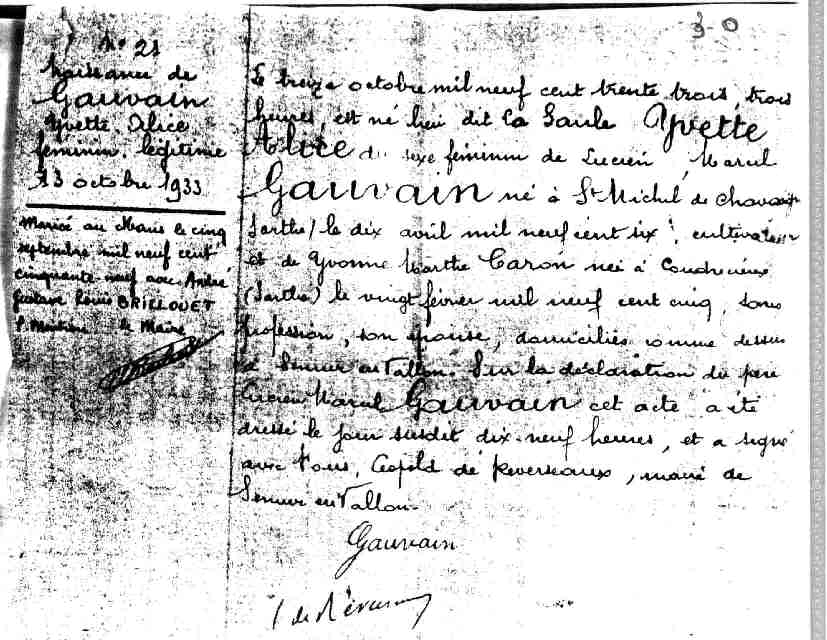 30
N° 21
Naissance de
Gauvain
Yvette Alice
féminin. légitime
13 octobre 1933
Mariée au Mans le cinq
septembre mil neuf cent
cinquante neuf avec André
Gustave Louis BRILLOUET
le Maire
Le treize octobre mil neuf cent trente trois, trois
heures, est né lieu dit La Saule Yvette
Alice du sexe féminin de Lucien Marcel
Gauvain né à St Michel de Chavaignes
Sarthe) le dix avril mil neuf cent six, cultivateur
et de Yvonne Marthe Caron née à Coudrecieux
(Sarthe) le vingt février mil neuf cent cinq, sans
profession, son épouse, domiciliés comme dessus
à Semur en Vallon. Sur la déclaration du père
Lucien Marcel Gauvain cet acte a été
dressé le jour susdit dix-neuf heures, et a signé
avec Nous, Léopold de Reverseaux, maire de
Semur en Vallon.
Gauvain